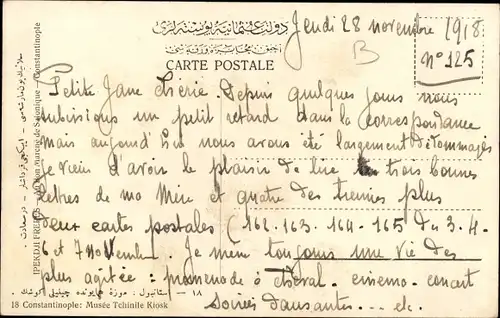 Jeudi 28 novembre 1918
دولت عثمانیه پوسته لری
B
CARTE POSTALE
N° 125
Petite Jane Chérie. Depuis quelques jours nous
subissions un petit retard dans la correspondance
mais aujourd'hui nous avons été largement dédommagés
je viens d'avoir le plaisir de lire trois bonnes
lettres de ma Mère et quatre des tiennes plus
deux cartes postales (162.163.164-165 du 3.4-
6 et 7 Novembre. Je mène toujours une vie des
plus agitée : promenade à cheval. cinéma. concert
Soirées dansantes... etc.
IPEKDJI FRERES Marché de Salonique - Constantinople
18 Constantinople: Musée Tchinile Kiosk
١٨ – ستانبول : موزهٔ همایونده چینیلی کوشك .